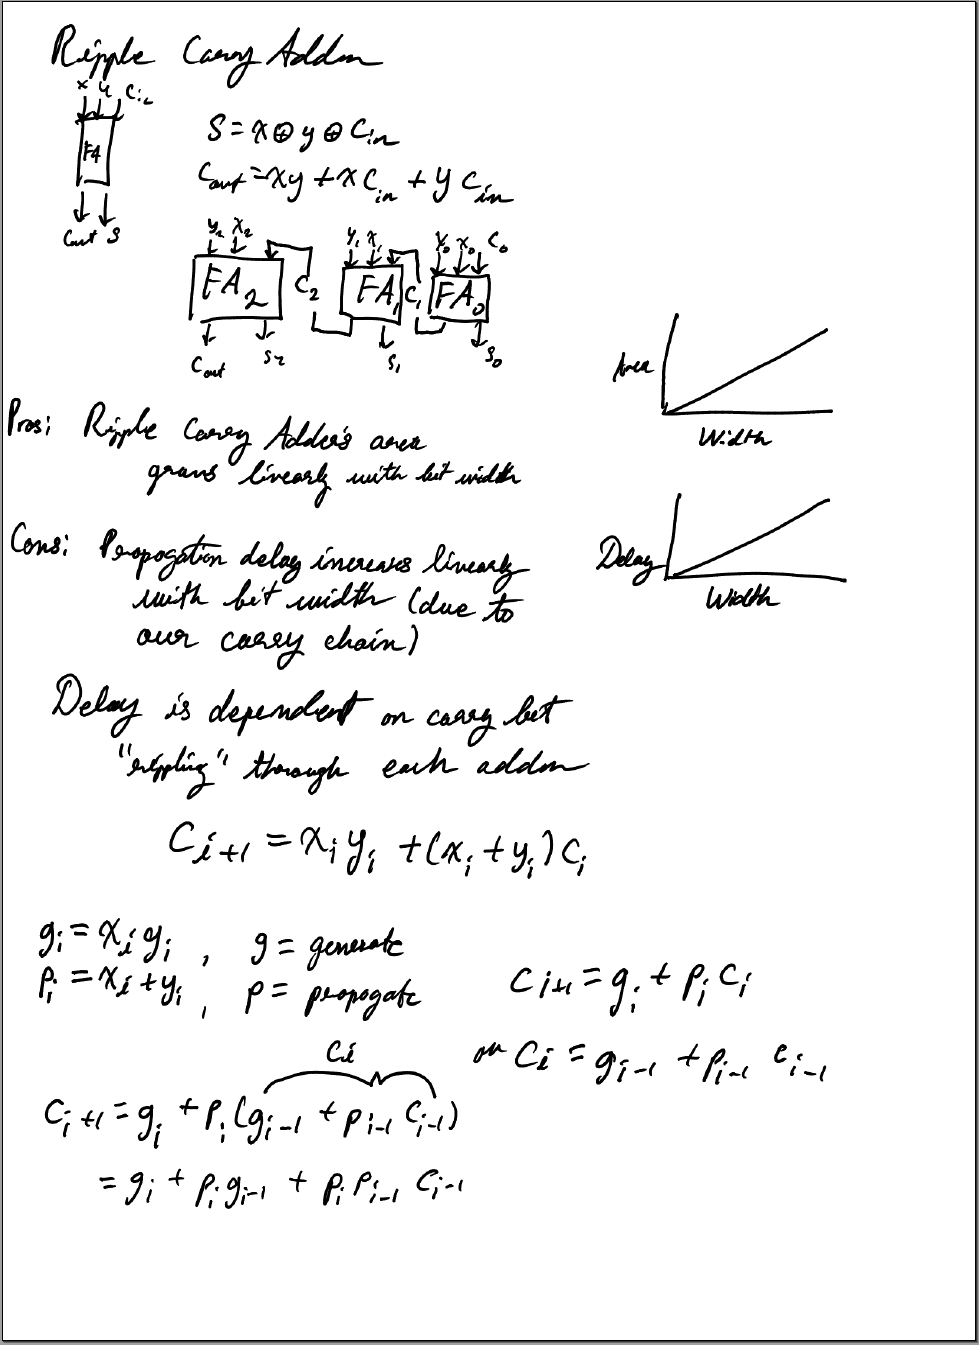 Ripple Carry Adder
x y Cin
FA
Cout S
S = x ⊕ y ⊕ Cin
Cout = xy + x Cin + y Cin
y₂ x₂ y₁ x₁ y₀ x₀ C₀
FA₂ C₂ FA₁ C₁ FA₀
Cout S₂ S₁ S₀
Area
Width
Pros: Ripple Carry Adder's area
grows linearly with bit width
Delay
Width
Cons: Propogation delay increases linearly
with bit width (due to
our carry chain)
Delay is dependent on carry bit
"rippling" through each adder
Cᵢ₊₁ = xᵢ yᵢ + (xᵢ + yᵢ) Cᵢ
gᵢ = xᵢ yᵢ , g = generate
pᵢ = xᵢ + yᵢ , p = propogate
Cᵢ₊₁ = gᵢ + pᵢ Cᵢ
or Cᵢ = gᵢ₋₁ + pᵢ₋₁ Cᵢ₋₁
Cᵢ
Cᵢ₊₁ = gᵢ + pᵢ (gᵢ₋₁ + pᵢ₋₁ Cᵢ₋₁)
= gᵢ + pᵢ gᵢ₋₁ + pᵢ pᵢ₋₁ Cᵢ₋₁